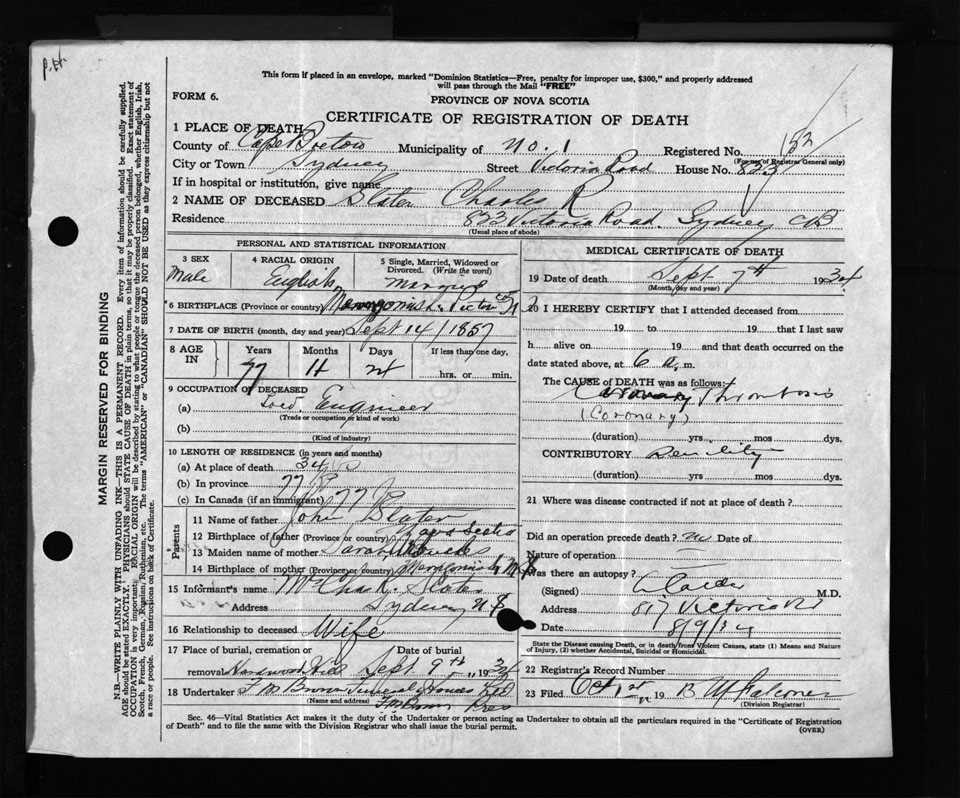 This form if placed in an envelope, marked "Dominion Statistics—Free, penalty for improper use, $300," and properly addressed
will pass through the Mail "FREE"
FORM 6.
PROVINCE OF NOVA SCOTIA
CERTIFICATE OF REGISTRATION OF DEATH
1 PLACE OF DEATH
County of Cape Breton Municipality of No. 1 Registered No. 182
(For use of Registrar General only)
City or Town Sydney Street Victoria Road House No. 823
If in hospital or institution, give name
2 NAME OF DECEASED Slater Charles R
Residence 823 Victoria Road. Sydney CB
(Usual place of abode)
PERSONAL AND STATISTICAL INFORMATION
3 SEX Male
4 RACIAL ORIGIN English
5 Single, Married, Widowed or Divorced. (Write the word)
6 BIRTHPLACE (Province or country)
7 DATE OF BIRTH (month, day and year) Sept 14/1857
8 AGE IN
Years 77
Months 11
Days
If less than one day,
hrs. or min.
9 OCCUPATION OF DECEASED
(a) Loco. Engineer
(Trade or occupation or kind of work)
(b)
(Kind of industry)
10 LENGTH OF RESIDENCE (in years and months)
(a) At place of death 34
(b) In province 77
(c) In Canada (if an immigrant) 77
Parents
11 Name of father John Slater
12 Birthplace of father (Province or country) Nova Scotia
13 Maiden name of mother Sarah
14 Birthplace of mother (Province or country)
15 Informant's name Mrs Chas R. Slater
Address Sydney N S
16 Relationship to deceased Wife
17 Place of burial, cremation or Date of burial
removal Hardwood Hill Sept 9th, 1934
18 Undertaker T M Brown Funeral Homes Ltd
(Name and address)
Pres
MEDICAL CERTIFICATE OF DEATH
19 Date of death Sept 7th 1934
(Month, day and year)
20 I HEREBY CERTIFY that I attended deceased from
19 to 19 that I last saw
h alive on 19 and that death occurred on the
date stated above, at 6 a. m.
The CAUSE of DEATH was as follows:
Coronary Thrombosis
(Coronary)
(duration) yrs. mos. dys.
CONTRIBUTORY Senility
(duration) yrs. mos. dys.
21 Where was disease contracted if not at place of death?
Did an operation precede death? No Date of
Nature of operation
Was there an autopsy?
(Signed) M.D.
Address 817 Victoria Rd
Date 8/9/34
State the Disease causing Death, or in death from Violent Causes, state (1) Means and Nature
of Injury, (2) whether Accidental, Suicidal or Homicidal.
22 Registrar's Record Number
23 Filed Oct 1st 19 B M Falconer
(Division Registrar)
Sec. 46—Vital Statistics Act makes it the duty of the Undertaker or person acting as Undertaker to obtain all the particulars required in the "Certificate of Registration
of Death" and to file same with the Division Registrar who shall issue the burial permit.
(OVER)
MARGIN RESERVED FOR BINDING
N.B.—WRITE PLAINLY WITH UNFADING INK—THIS IS A PERMANENT RECORD. Every item of information should be carefully supplied.
AGE should be stated EXACTLY. PHYSICIANS should STATE CAUSE OF DEATH in plain terms, so that it may be properly classified. Exact statement of
OCCUPATION is very important. RACIAL ORIGIN will be described by stating to what people or tongue the deceased person belonged, whether English, Irish,
Scotch, French, German, Russian, Ruthenian, etc. The terms "AMERICAN" or "CANADIAN" SHOULD NOT BE USED as they express citizenship but not
a race or people. See instructions on back of Certificate.